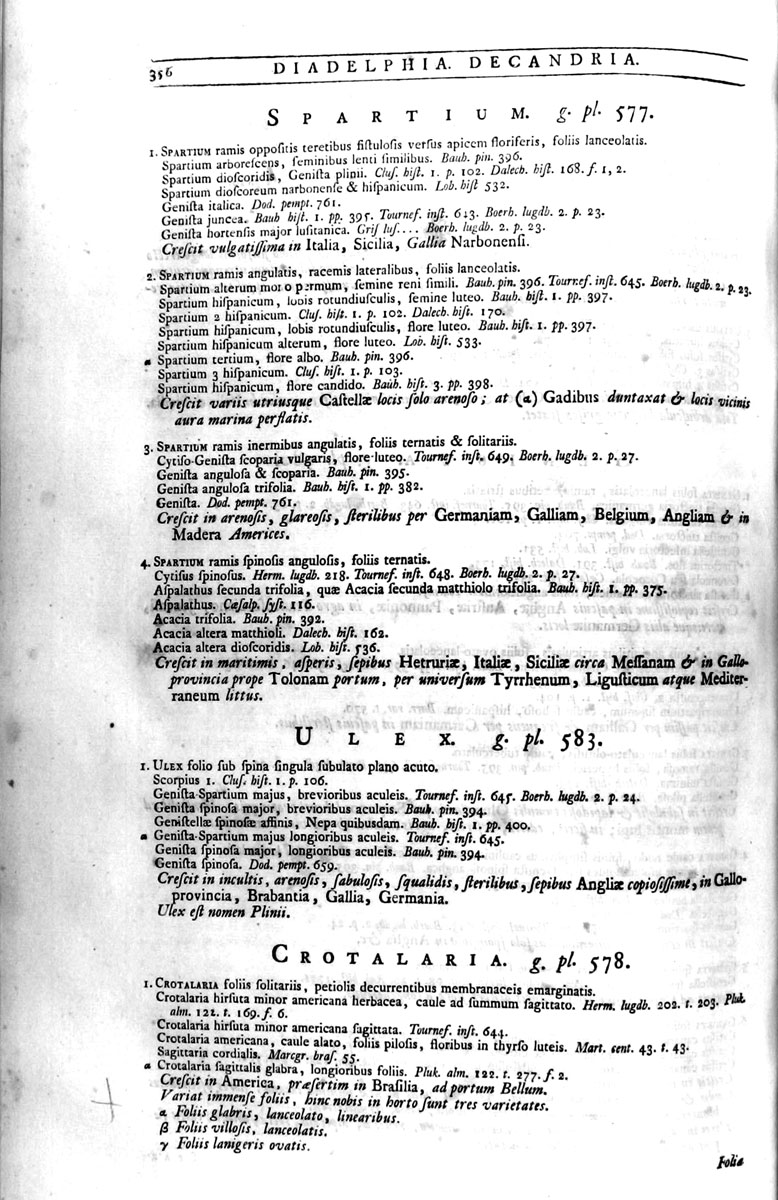 356 DIADELPHIA. DECANDRIA.
SPARTIUM. g. pl. 577.
1. SPARTIUM ramis oppoſitis teretibus fiſtuloſis verſus apicem floriferis, foliis lanceolatis.
Spartium arboreſcens, ſeminibus lenti ſimilibus. Bauh. pin. 396.
Spartium dioſcoridis, Geniſta plinii. Cluſ. hiſt. 1. p. 102. Dalech. hiſt. 168. f. 1, 2.
Spartium dioſcoreum narbonenſe & hiſpanicum. Lob. hiſt 532.
Geniſta italica. Dod. pempt. 761.
Geniſta juncea. Bauh hiſt. 1. pp. 395. Tournef. inſt. 643. Boerh. lugdb. 2. p. 23.
Geniſta hortenſis major luſitanica. Griſ luſ.... Boerh. lugdb. 2. p. 23.
Creſcit vulgatiſſima in Italia, Sicilia, Gallia Narbonenſi.
2. SPARTIUM ramis angulatis, racemis lateralibus, foliis lanceolatis.
Spartium alterum mono permum, ſemine reni ſimili. Bauh. pin. 396. Tournef. inſt. 645. Boerh. lugdb. 2. p. 23.
Spartium hiſpanicum, lobis rotundiuſculis, ſemine luteo. Bauh. hiſt. 1. pp. 397.
Spartium 2 hiſpanicum. Cluſ. hiſt. 1. p. 102. Dalech. hiſt. 170.
Spartium hiſpanicum, lobis rotundiuſculis, flore luteo. Bauh. hiſt. 1. pp. 397.
Spartium hiſpanicum alterum, flore luteo. Lob. hiſt. 533.
α Spartium tertium, flore albo. Bauh. pin. 396.
Spartium 3 hiſpanicum. Cluſ. hiſt. 1. p. 103.
Spartium hiſpanicum, flore candido. Bauh. hiſt. 3. pp. 398.
Creſcit variis utriusque Caſtellæ locis ſolo arenoſo; at (α) Gadibus duntaxat & locis vicinis
aura marina perflatis.
3. SPARTIUM ramis inermibus angulatis, foliis ternatis & ſolitariis.
Cytiſo-Geniſta ſcoparia vulgaris, flore luteo. Tournef. inſt. 649. Boerh. lugdb. 2. p. 27.
Geniſta anguloſa & ſcoparia. Bauh. pin. 395.
Geniſta anguloſa trifolia. Bauh. hiſt. 1. pp. 382.
Geniſta. Dod. pempt. 761.
Creſcit in arenoſis, glareoſis, ſterilibus per Germaniam, Galliam, Belgium, Angliam & in
Madera Americes.
4. SPARTIUM ramis ſpinoſis anguloſis, foliis ternatis.
Cytiſus ſpinoſus. Herm. lugdb. 218. Tournef. inſt. 648. Boerh. lugdb. 2. p. 27.
Aſpalathus ſecunda trifolia, quæ Acacia ſecunda matthiolo trifolia. Bauh. hiſt. 1. pp. 375.
Aſpalathus. Cæſalp. ſyſt. 116.
Acacia trifolia. Bauh. pin. 392.
Acacia altera matthioli. Dalech. hiſt. 162.
Acacia altera dioſcoridis. Lob. hiſt. 536.
Creſcit in maritimis, aſperis, ſepibus Hetruriæ, Italiæ, Siciliæ circa Meſſanam & in Gallo-
provincia prope Tolonam portum, per univerſum Tyrrhenum, Liguſticum atque Mediter-
raneum littus.
ULEX. g. pl. 583.
1. ULEX folio ſub ſpina ſingula ſubulato plano acuto.
Scorpius 1. Cluſ. hiſt. 1. p. 106.
Geniſta-Spartium majus, brevioribus aculeis. Tournef. inſt. 645. Boerh. lugdb. 2. p. 24.
Geniſta ſpinoſa major, brevioribus aculeis. Bauh. pin. 394.
Geniſtellæ ſpinoſæ affinis, Nepa quibusdam. Bauh. hiſt. 1. pp. 400.
α Geniſta-Spartium majus longioribus aculeis. Tournef. inſt. 645.
Geniſta ſpinoſa major, longioribus aculeis. Bauh. pin. 394.
Geniſta ſpinoſa. Dod. pempt. 659.
Creſcit in incultis, arenoſis, ſabuloſis, ſqualidis, ſterilibus, ſepibus Angliæ copioſiſſime, in Gallo-
provincia, Brabantia, Gallia, Germania.
Ulex eſt nomen Plinii.
CROTALARIA. g. pl. 578.
1. CROTALARIA foliis ſolitariis, petiolis decurrentibus membranaceis emarginatis.
Crotalaria hirſuta minor americana herbacea, caule ad ſummum ſagittato. Herm. lugdb. 202. t. 203. Pluk.
alm. 122. t. 169. f. 6.
Crotalaria hirſuta minor americana ſagittata. Tournef. inſt. 644.
Crotalaria americana, caule alato, foliis piloſis, floribus in thyrſo luteis. Mart. cent. 43. t. 43.
Sagittaria cordialis. Marcgr. braſ. 55.
α Crotalaria ſagittalis glabra, longioribus foliis. Pluk. alm. 122. t. 277. f. 2.
Creſcit in America, præſertim in Braſilia, ad portum Bellum.
Variat immenſe foliis, hinc nobis in horto ſunt tres varietates.
α Foliis glabris, lanceolato, linearibus.
β Foliis villoſis, lanceolatis.
γ Foliis lanigeris ovatis.
Folia